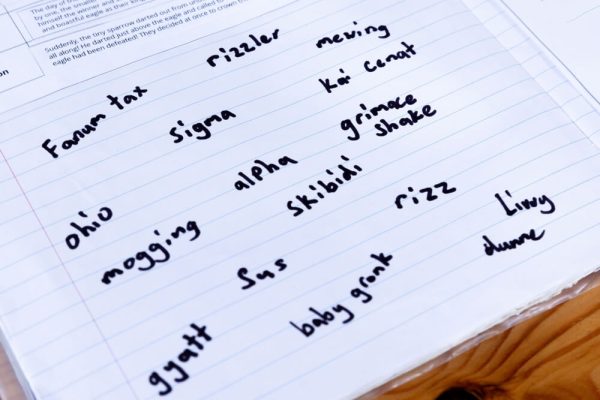 The day of
by one, the smaller
himself the winner and
and boastful eagle as their king
Suddenly, the tiny sparrow darted out from un
all along! He darted just above the eagle and called to
eagle had been defeated! They decided at once to crown
on
rizzler
mewing
Fanum tax
sigma
Kai cenat
grimace
shake
ohio
alpha
skibidi
rizz
Livvy
dunne
mogging
sus
baby gronk
gyatt